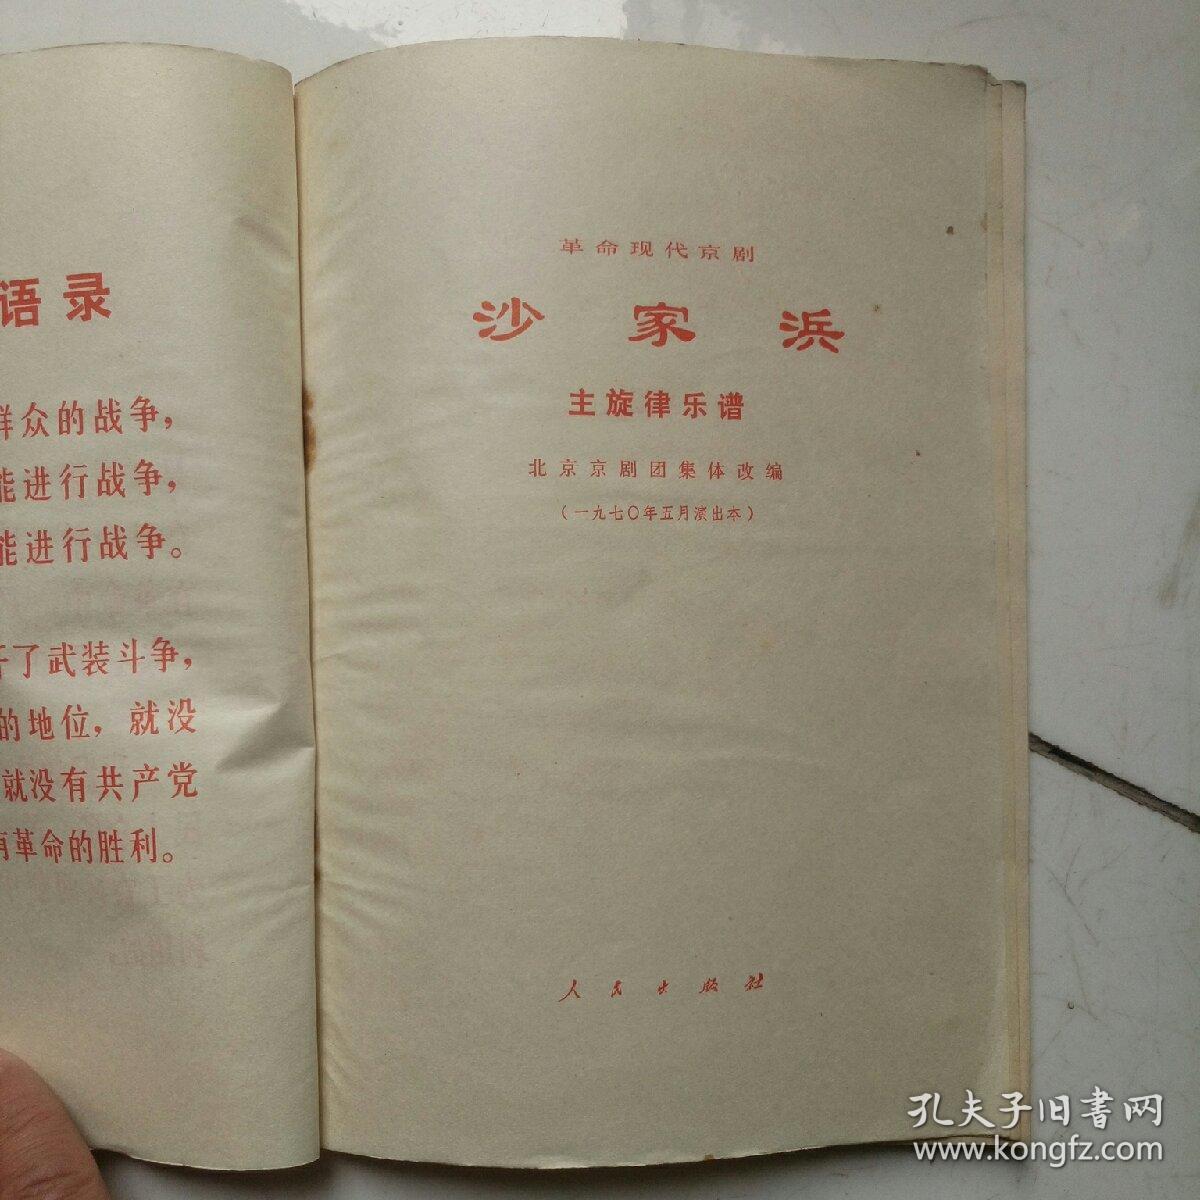 语录
群众的战争，
能进行战争，
能进行战争。
了武装斗争，
的地位，就没
就没有共产党
有革命的胜利。
革命现代京剧
沙家浜
主旋律乐谱
北京京剧团集体改编
（一九七〇年五月演出本）
人民出版社
孔夫子旧书网
www.kongfz.com